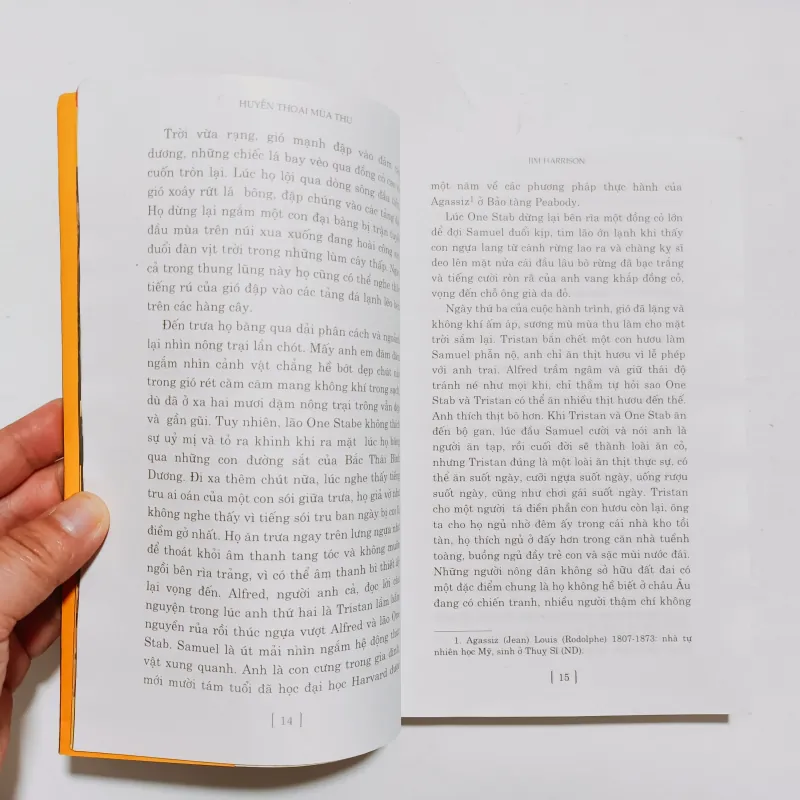 HUYỀN THOẠI MÙA THU
Trời vừa rạng, gió mạnh đập vào
dương, những chiếc lá bay vèo qua đồng cỏ
cuốn tròn lại. Lúc họ lội qua dòng sông đầu tiên,
gió xoáy rứt lá bông, đập chúng vào các tảng đá.
Họ dừng lại ngắm một con đại bàng bị trận tuyết
đầu mùa trên núi xua xuống đang hoài công
đuổi đàn vịt trời trong những lùm cây thấp. Ngay
cả trong thung lũng này họ cũng có thể nghe thấy
tiếng rú của gió đập vào các tảng đá lạnh lẽo
trên các hàng cây.
Đến trưa họ băng qua dải phân cách và ngoảnh
lại nhìn nông trại lần chót. Mấy anh em đăm đăm
ngắm nhìn cảnh vật chẳng hề bớt đẹp chút nào
trong gió rét căm căm mang không khí trong sạch,
dù đã ở xa hai mươi dặm nông trại trông vẫn đẹp
và gần gũi. Tuy nhiên, lão One Stabe không thích
sự uỷ mị và tỏ ra khinh khi ra mặt lúc họ băng
qua những con đường sắt của Bắc Thái Bình
Dương. Đi xa thêm chút nữa, lúc nghe thấy tiếng
tru ai oán của một con sói giữa trưa, họ giả vờ như
không nghe thấy vì tiếng sói tru ban ngày bị coi là
điềm gở nhất. Họ ăn trưa ngay trên lưng ngựa như
để thoát khỏi âm thanh tang tóc và không muốn
ngồi bên rìa trảng, vì có thể âm thanh bi thiết ấy
lại vọng đến. Alfred, người anh cả, đọc lời cầu
nguyện trong lúc anh thứ hai là Tristan lầm bầm
nguyền rủa rồi thúc ngựa vượt Alfred và lão One
Stab. Samuel là út mải nhìn ngắm hệ động thực
vật xung quanh. Anh là con cưng trong gia đình,
mới mười tám tuổi đã học đại học Harvard được
[ 14 ]
JIM HARRISON
một năm về các phương pháp thực hành của
Agassiz¹ ở Bảo tàng Peabody.
Lúc One Stab dừng lại bên rìa một đồng cỏ lớn
để đợi Samuel đuổi kịp, tim lão ớn lạnh khi thấy
con ngựa lang từ cánh rừng lao ra và chàng kỵ sĩ
đeo lên mặt nửa cái đầu lâu bò rừng đã bạc trắng
và tiếng cười ròn rã của anh vang khắp đồng cỏ,
vọng đến chỗ ông già da đỏ.
Ngày thứ ba của cuộc hành trình, gió đã lặng và
không khí ấm áp, sương mù mùa thu làm cho mặt
trời sẫm lại. Tristan bắn chết một con hươu làm
Samuel phẫn nộ, anh chỉ ăn thịt hươu vì lễ phép
với anh trai. Alfred trầm ngâm và giữ thái độ
tránh né như mọi khi, chỉ thầm tự hỏi sao One
Stab và Tristan có thể ăn nhiều thịt hươu đến thế.
Anh thích thịt bò hơn. Khi Tristan và One Stab ăn
đến bộ gan, lúc đầu Samuel cười và nói anh là
người ăn tạp, rồi cuối đời sẽ thành loài ăn cỏ,
nhưng Tristan đúng là một loài ăn thịt thực sự, có
thể ăn suốt ngày, cưỡi ngựa suốt ngày, uống rượu
suốt ngày, cũng như chơi gái suốt ngày. Tristan
cho một người tá điền phần con hươu còn lại, ông
ta cho họ ngủ nhờ đêm ấy trong cái nhà kho tồi
tàn, họ thích ngủ ở đấy hơn trong căn nhà tuềnh
toàng, buồng ngủ đầy trẻ con và sặc mùi nước đái.
Những người nông dân không sở hữu đất đai có
một đặc điểm chung là họ không hề biết ở châu Âu
đang có chiến tranh, nhiều người thậm chí không
1. Agassiz (Jean) Louis (Rodolphe) 1807-1873: nhà tự
nhiên học Mỹ, sinh ở Thuỵ Sĩ (ND).
[ 15 ]